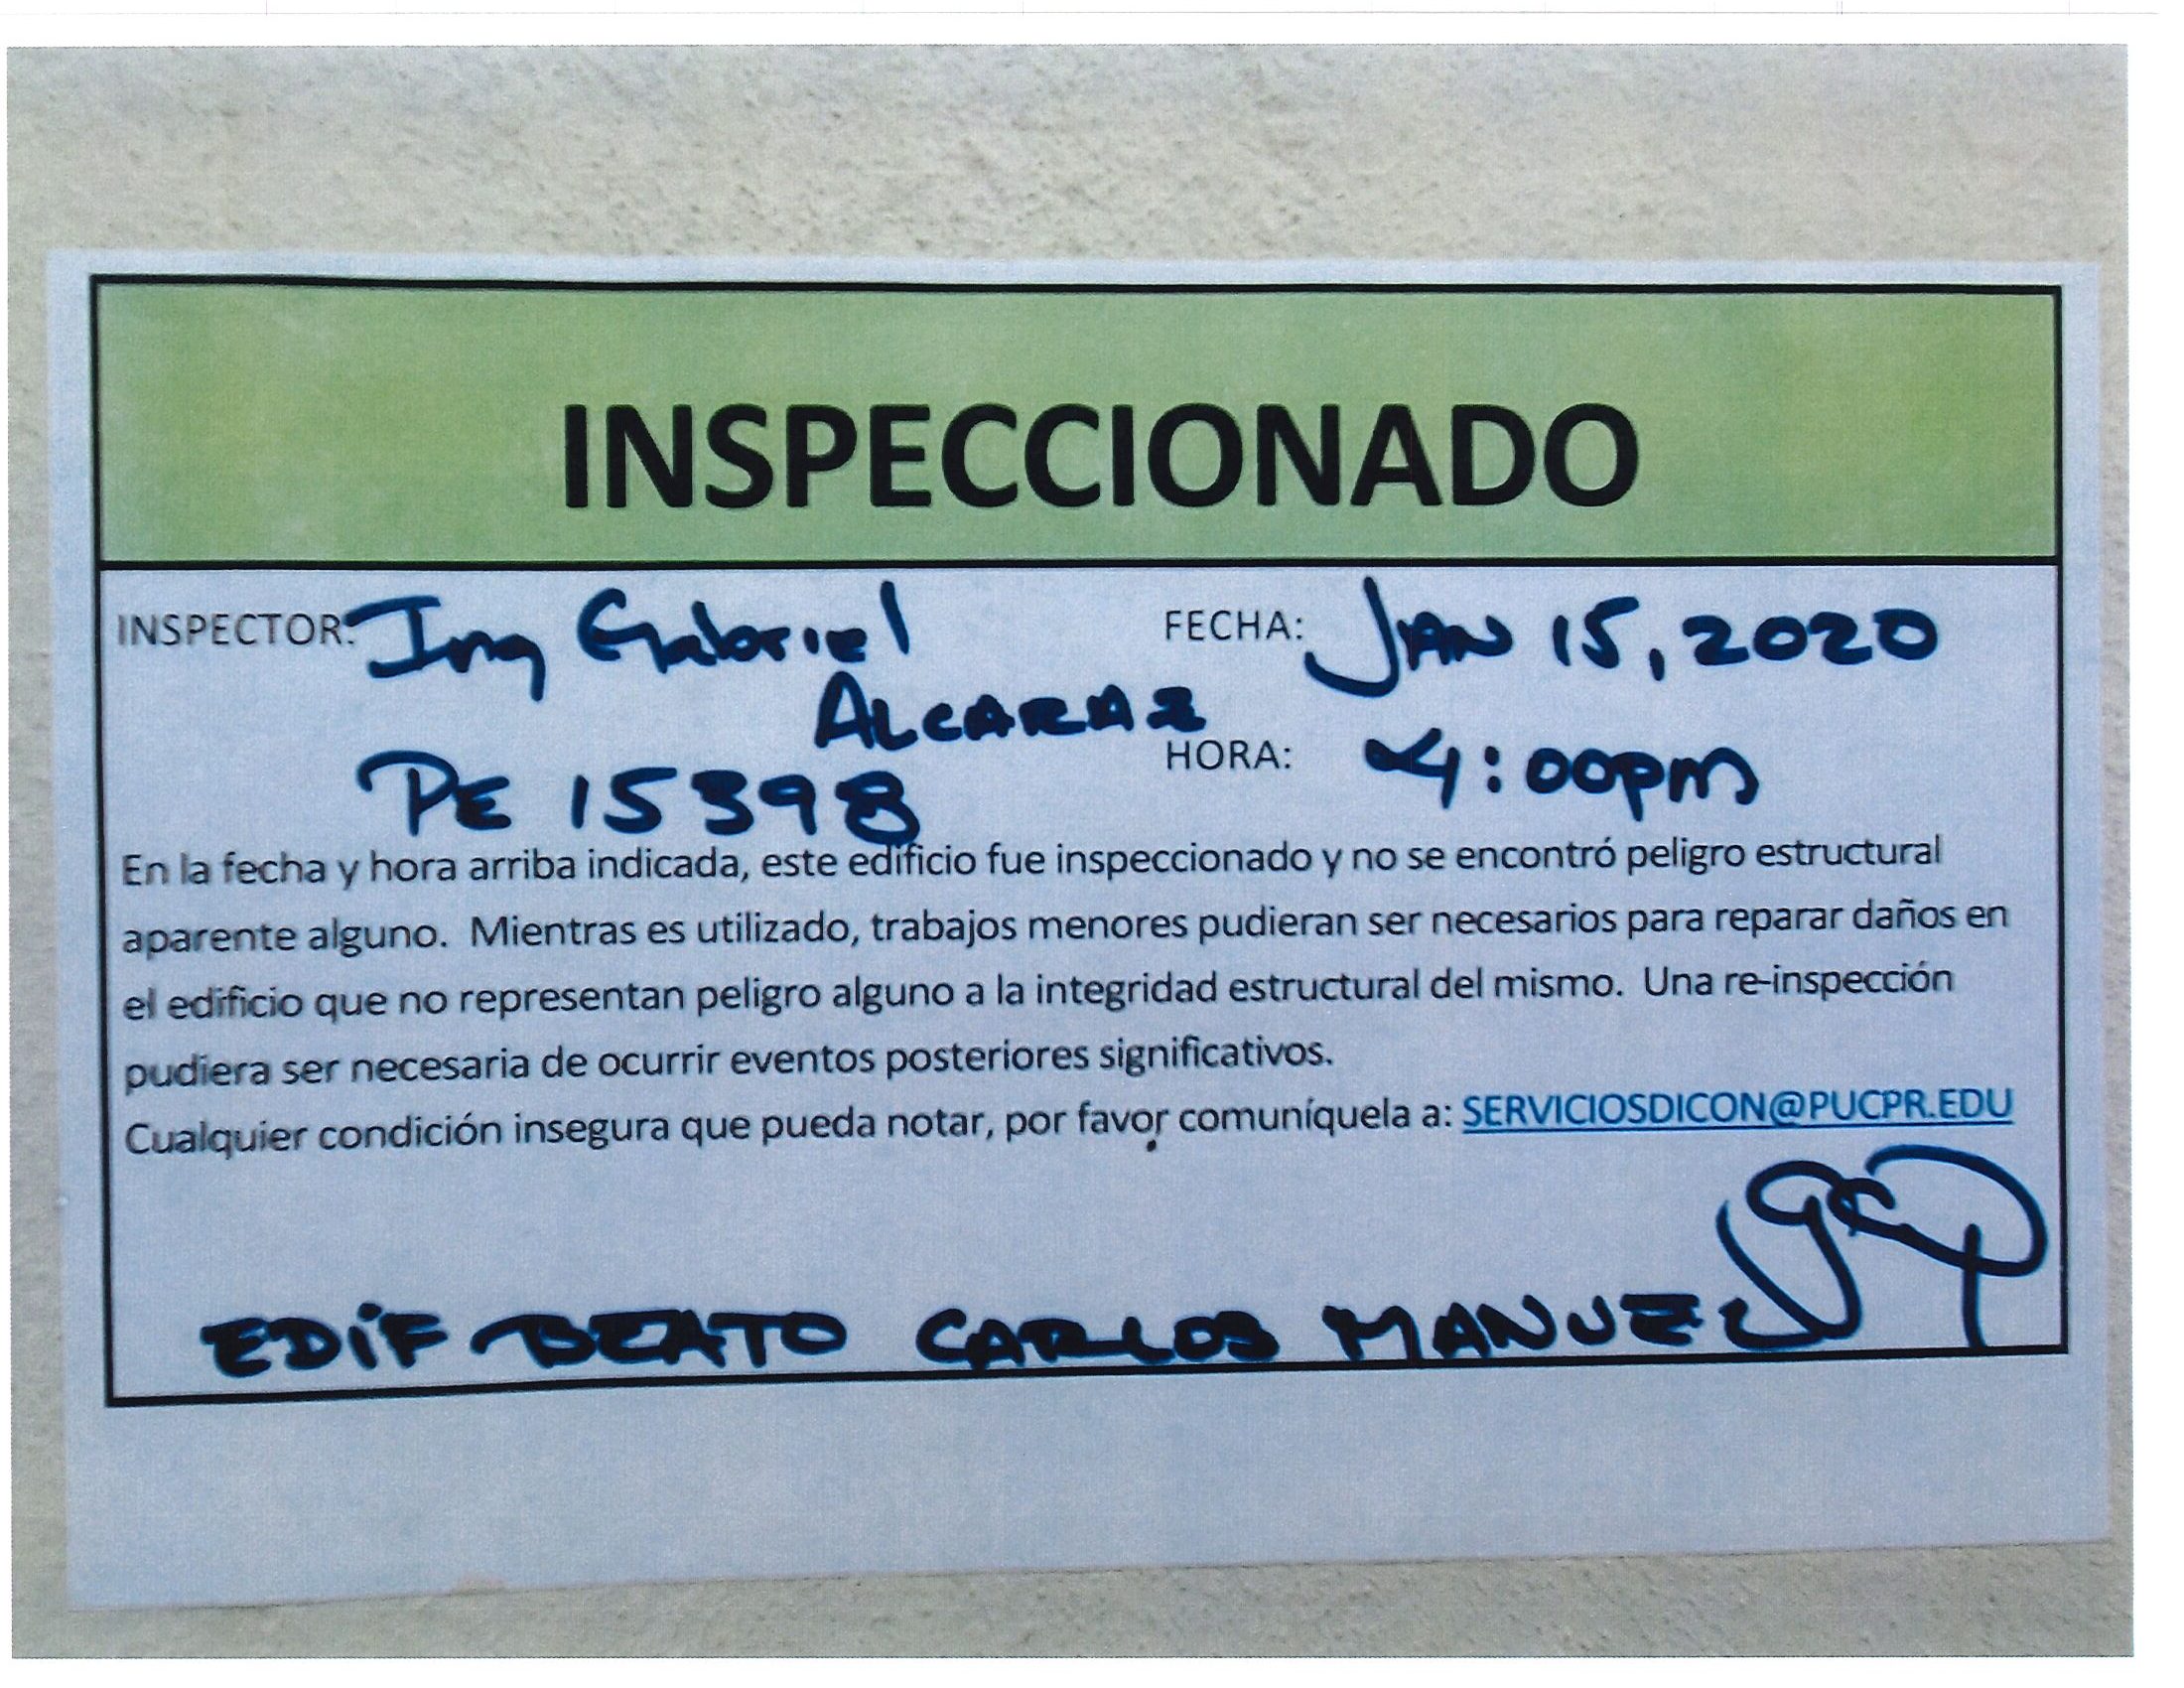 INSPECCIONADO
INSPECTOR: Ing Gabriel
ALCARAZ
PE 15398
FECHA: JAN 15, 2020
HORA: 4:00pm
En la fecha y hora arriba indicada, este edificio fue inspeccionado y no se encontró peligro estructural
aparente alguno. Mientras es utilizado, trabajos menores pudieran ser necesarios para reparar daños en
el edificio que no representan peligro alguno a la integridad estructural del mismo. Una re-inspección
pudiera ser necesaria de ocurrir eventos posteriores significativos.
Cualquier condición insegura que pueda notar, por favor comuníquela a: SERVICIOSDICON@PUCPR.EDU
EDIF BEATO CARLOS MANUEL